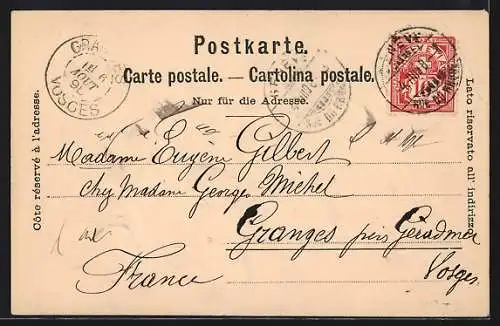 Postkarte.
Carte postale. — Cartolina postale.
Nur für die Adresse.
Côte réservé à l'adresse.
Lato riservato all' indirizzo.
VOSGES
Madame Eugène Gilbert
chez Madame Georges Michel
Granges près Gerardmer
Vosges
France